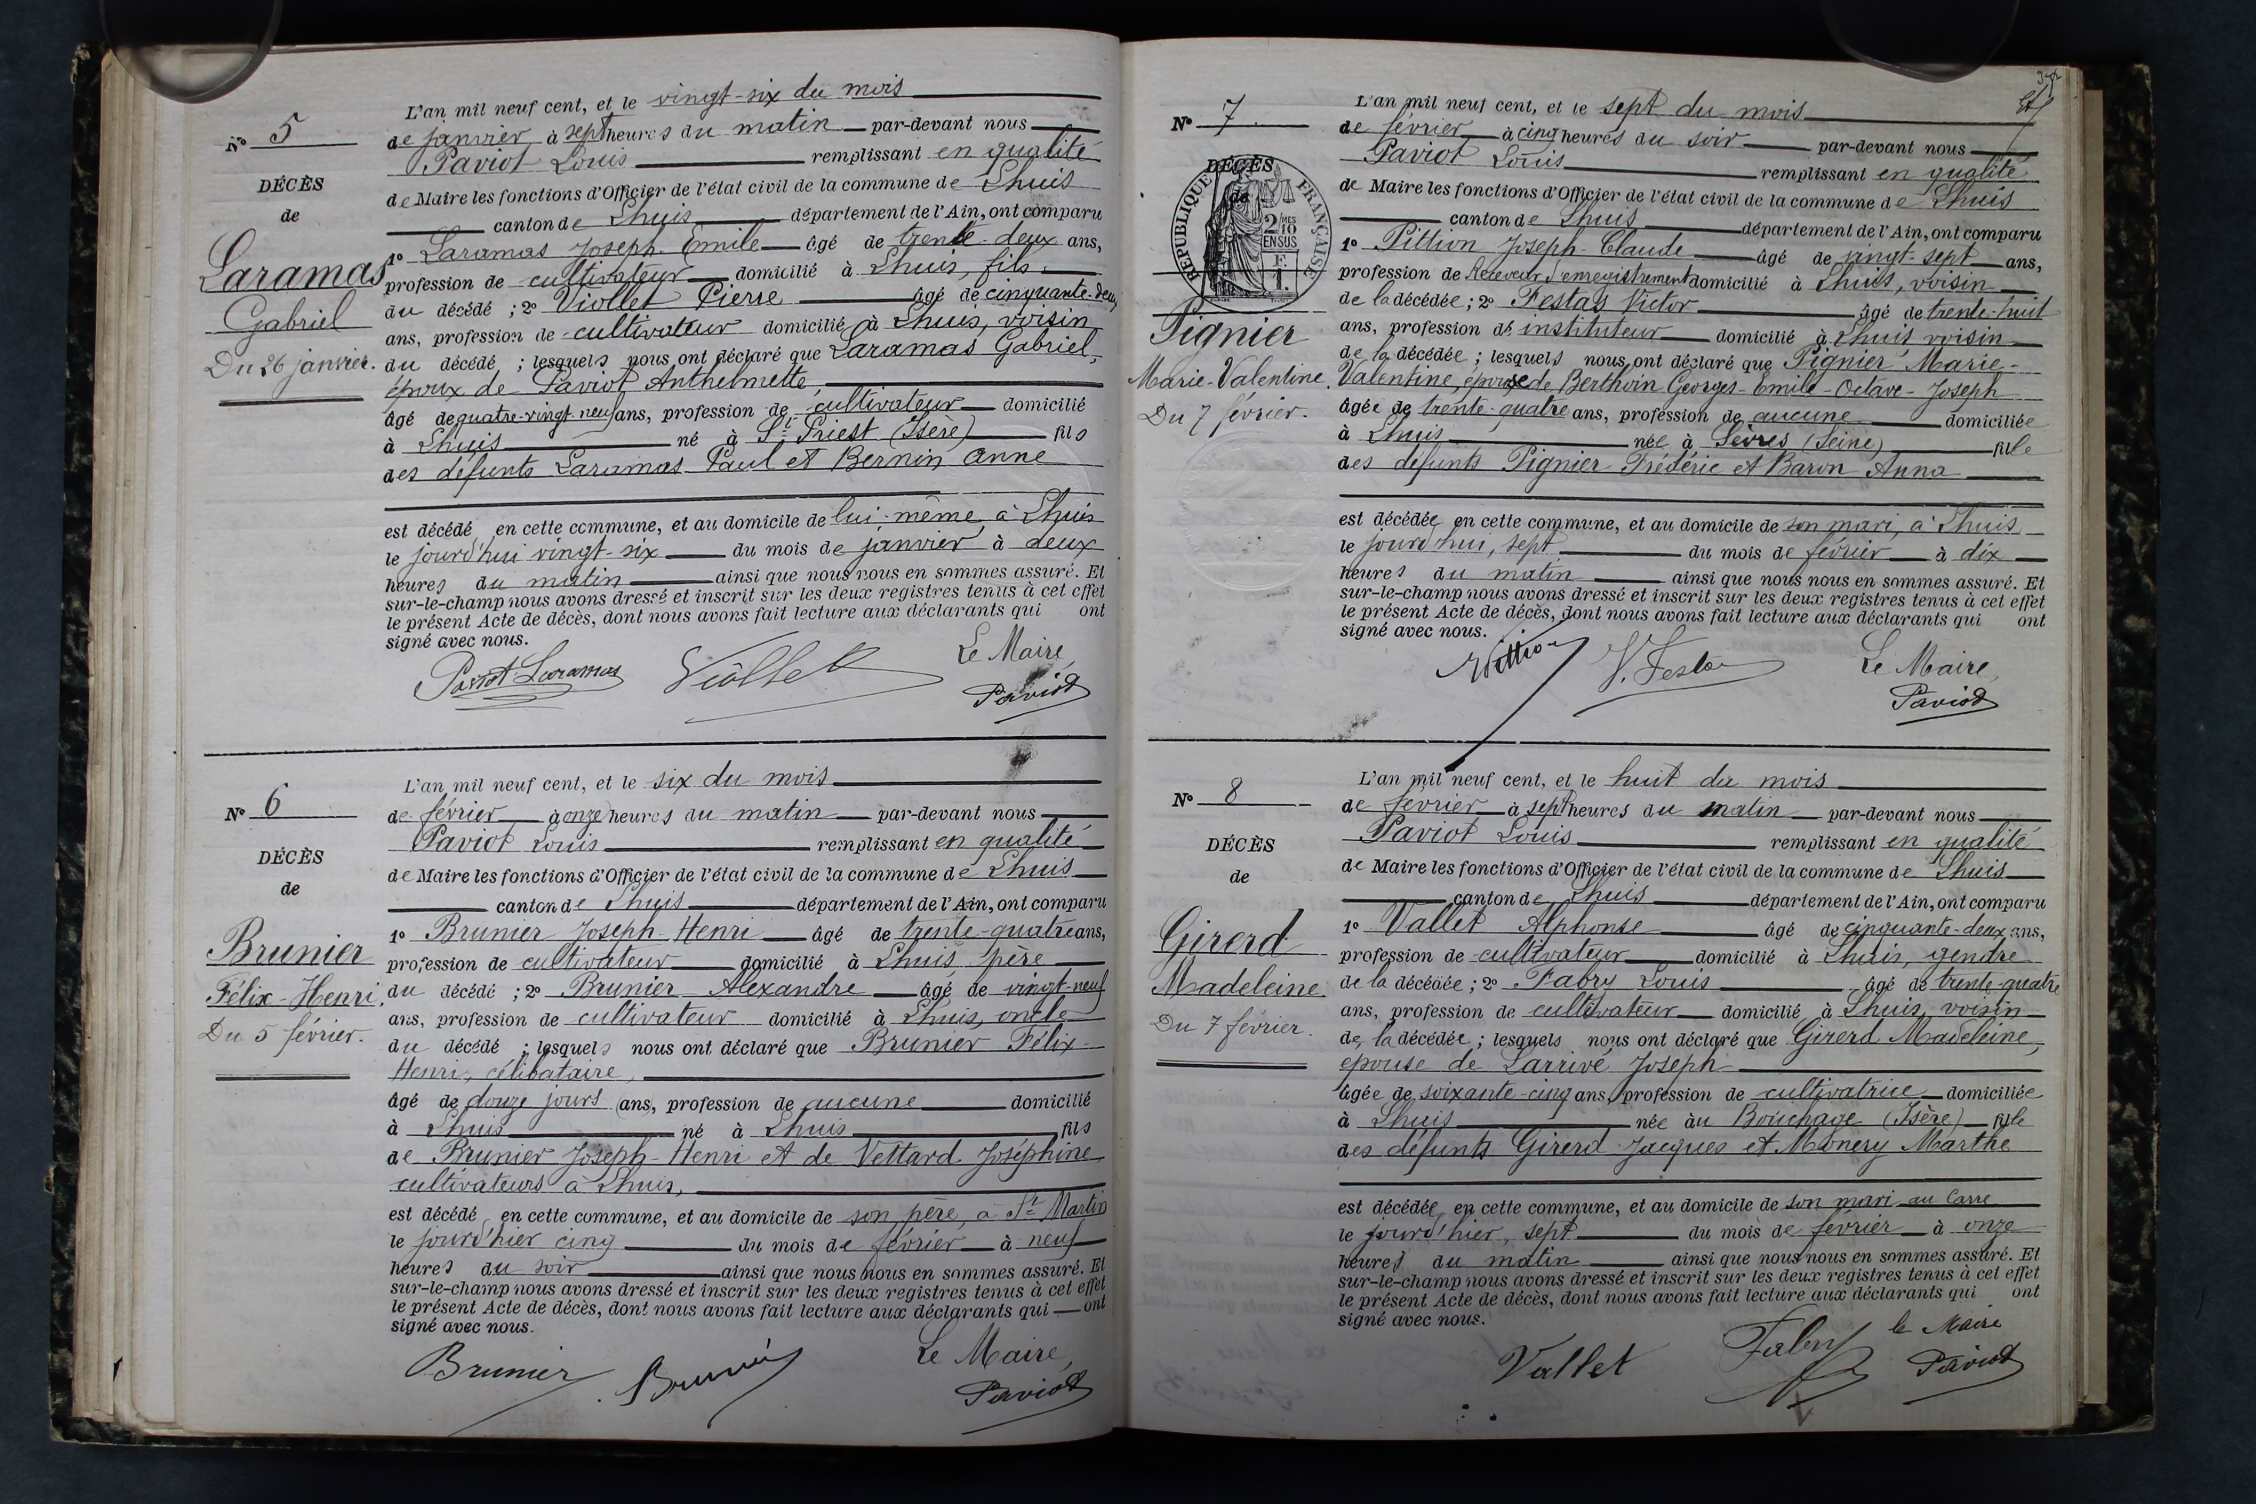 N° 5
DÉCÈS
de
Laramas
Gabriel
Du 26 janvier.
L'an mil neuf cent, et le vingt-six du mois
de janvier à sept heures du matin par-devant nous
Paviot Louis remplissant en qualité
de Maire les fonctions d'Officier de l'état civil de la commune de Lhuis
canton de Lhuis département de l'Ain, ont comparu
1° Laramas Joseph-Emile âgé de trente-deux ans,
profession de cultivateur domicilié à Lhuis, fils
du décédé ; 2° Viollet Pierre âgé de cinquante-deux
ans, profession de cultivateur domicilié à Lhuis, voisin
du décédé ; lesquels nous ont déclaré que Laramas Gabriel,
époux de Paviot Anthelmette,
âgé de quatre-vingt-neuf ans, profession de cultivateur domicilié
à Lhuis né à St Priest (Isère) fils
des défunts Laramas Paul et Bernin Anne
est décédé en cette commune, et au domicile de lui-même, à Lhuis
le jourd'hui vingt-six du mois de janvier à deux
heures du matin ainsi que nous nous en sommes assuré. Et
sur-le-champ nous avons dressé et inscrit sur les deux registres tenus à cet effet
le présent Acte de décès, dont nous avons fait lecture aux déclarants qui ont
signé avec nous.
Le Maire,
Laramas Viollet Paviot
N° 6
DÉCÈS
de
Brunier
Félix-Henri.
Du 5 février.
L'an mil neuf cent, et le six du mois
de février à onze heures du matin par-devant nous
Paviot Louis remplissant en qualité
de Maire les fonctions d'Officier de l'état civil de la commune de Lhuis
canton de Lhuis département de l'Ain, ont comparu
1° Brunier Joseph-Henri âgé de trente-quatre ans,
profession de cultivateur domicilié à Lhuis, père
du décédé ; 2° Brunier Alexandre âgé de vingt-neuf
ans, profession de cultivateur domicilié à Lhuis, oncle
du décédé ; lesquels nous ont déclaré que Brunier Félix-
Henri, célibataire,
âgé de douze jours ans, profession de aucune domicilié
à Lhuis né à Lhuis fils
de Brunier Joseph-Henri et de Vettard Joséphine
cultivateurs à Lhuis,
est décédé en cette commune, et au domicile de son père, à St Martin
le jourd'hier cinq du mois de février à neuf
heures du soir ainsi que nous nous en sommes assuré. Et
sur-le-champ nous avons dressé et inscrit sur les deux registres tenus à cet effet
le présent Acte de décès, dont nous avons fait lecture aux déclarants qui ont
signé avec nous.
Le Maire,
Brunier Brunier Paviot
N° 7
DÉCÈS
de
RÉPUBLIQUE FRANÇAISE
2/10 MES
EN SUS
F.
1.
Pignier
Marie-Valentine.
Du 7 février.
L'an mil neuf cent, et le sept du mois
de février à cinq heures du soir par-devant nous
Paviot Louis remplissant en qualité
de Maire les fonctions d'Officier de l'état civil de la commune de Lhuis
canton de Lhuis département de l'Ain, ont comparu
1° Pittion Joseph-Claude âgé de vingt-sept ans,
profession de Receveur d'enregistrement domicilié à Lhuis, voisin
de la décédée ; 2° Festas Victor âgé de trente-huit
ans, profession de instituteur domicilié à Lhuis voisin
de la décédée ; lesquels nous ont déclaré que Pignier Marie-
Valentine, épouse de Berthoin Georges-Emile-Octave-Joseph
âgée de trente-quatre ans, profession de aucune domiciliée
à Lhuis née à Sèvres (Seine) fille
des défunts Pignier Frédéric et Baron Anna
est décédée en cette commune, et au domicile de son mari, à Lhuis
le jourd'hui, sept du mois de février à dix
heures du matin ainsi que nous nous en sommes assuré. Et
sur-le-champ nous avons dressé et inscrit sur les deux registres tenus à cet effet
le présent Acte de décès, dont nous avons fait lecture aux déclarants qui ont
signé avec nous.
Le Maire,
Pittion V. Festas Paviot
N° 8
DÉCÈS
de
Girerd
Madeleine.
Du 7 février.
L'an mil neuf cent, et le huit du mois
de février à sept heures du matin par-devant nous
Paviot Louis remplissant en qualité
de Maire les fonctions d'Officier de l'état civil de la commune de Lhuis
canton de Lhuis département de l'Ain, ont comparu
1° Vallet Alphonse âgé de cinquante-deux ans,
profession de cultivateur domicilié à Lhuis, gendre
de la décédée ; 2° Fabry Louis âgé de trente-quatre
ans, profession de cultivateur domicilié à Lhuis, voisin
de la décédée ; lesquels nous ont déclaré que Girerd Madeleine,
épouse de Larrivé Joseph
âgée de soixante-cinq ans, profession de cultivatrice domiciliée
à Lhuis née au Bouchage (Isère) fille
des défunts Girerd Jacques et Monery Marthe
est décédée en cette commune, et au domicile de son mari au Carre
le jourd'hier, sept du mois de février à onze
heures du matin ainsi que nous nous en sommes assuré. Et
sur-le-champ nous avons dressé et inscrit sur les deux registres tenus à cet effet
le présent Acte de décès, dont nous avons fait lecture aux déclarants qui ont
signé avec nous.
le Maire
Vallet Fabry Paviot